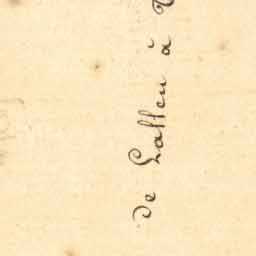 de Lalleu à